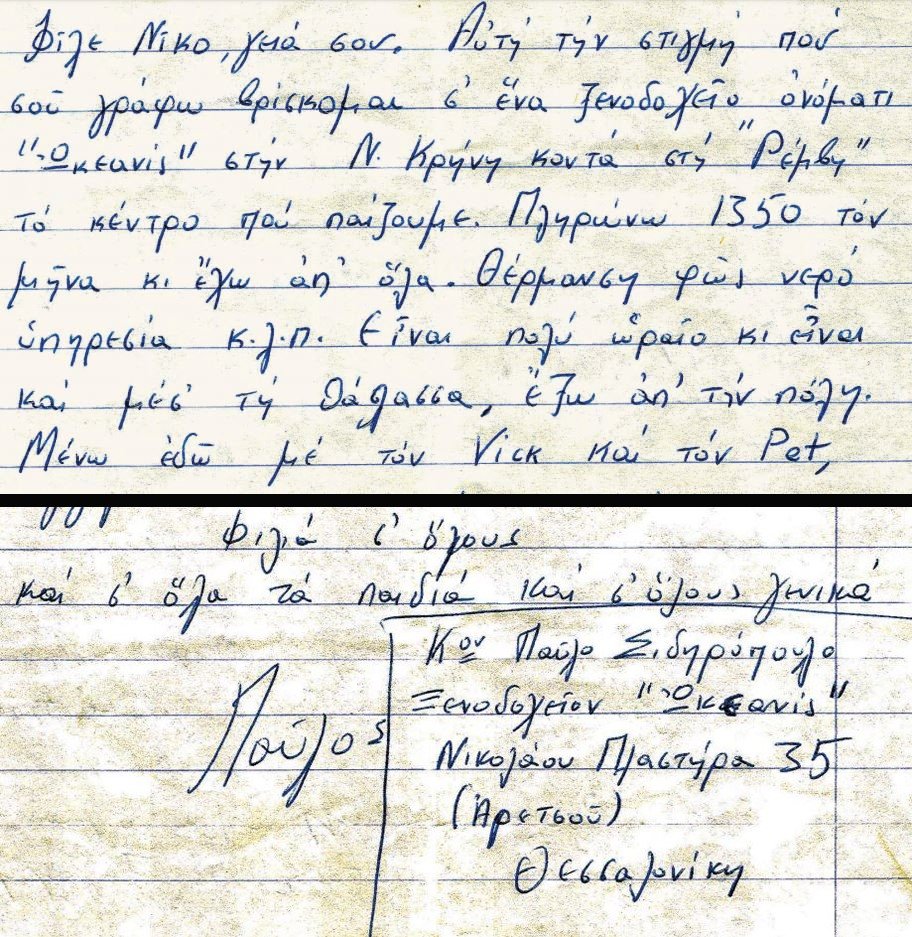 Φίλε Νίκο, γειά σου. Αὐτή τήν στιγμή πού
σοῦ γράφω βρίσκομαι σ' ἕνα ξενοδοχεῖο ὀνόματι
"Ὠκεανίς" στήν Ν. Κρήνη κοντά στή "Ρέμβη"
τό κέντρο πού παίζουμε. Πληρώνω 1350 τόν
μῆνα κι ἔχω ἀπ' ὅλα. Θέρμανση φῶς νερό
ὑπηρεσία κ.λ.π. Εἶναι πολύ ὡραῖο κι εἶναι
καί μέσ' τή θάλασσα, ἔξω ἀπ' τήν πόλη.
Μένω ἐδῶ μέ τόν Vick καί τόν Pet,
Φιλιά σ' ὅλους
καί σ' ὅλα τά παιδιά καί σ' ὅλους γενικά
Κον Παῦλο Σιδηρόπουλο
Ξενοδοχεῖον "Ὠκεανίς"
Παῦλος
Νικολάου Πλαστήρα 35
(Ἀρετσοῦ)
Θεσσαλονίκη